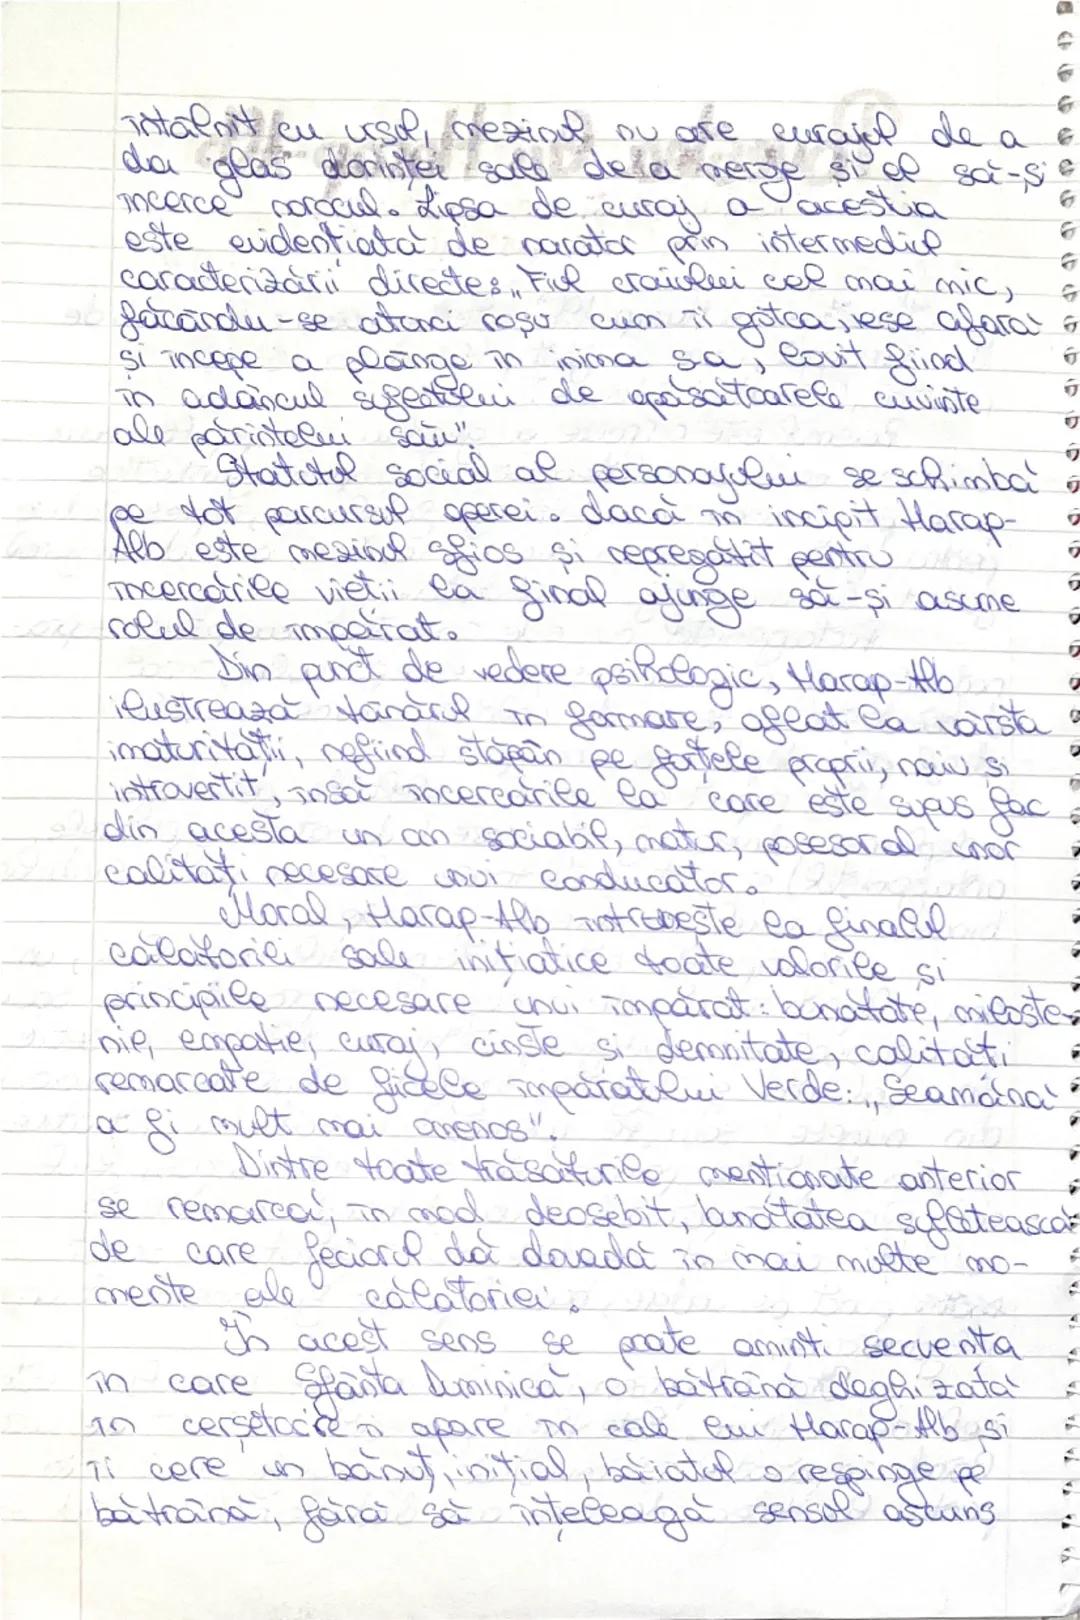 întâlnit cu ursul, mezinul nu are curajul de a
da glas dorinței sale de a merge și el să-și
încerce norocul. Lipsa de curaj a acestia
este evidențiată de narator prin intermediul
caracterizării directe: „Fiul craiului cel mai mic,
făcându-se atunci roșu cum îi gotca, iese afară
și începe a plânge în inima sa, lovit fiind
în adâncul sufletului de apăsătoarele cuvinte
ale părintelui său".
Statutul social al personajului se schimbă
pe tot parcursul operei. dacă în incipit Harap-
Alb este mezinul sfios și nepregătit pentru
încercările vieții la final ajunge să-și asume
rolul de împărat.
Din punct de vedere psihologic, Harap-Alb
ilustrează tânărul în formare, aflat la vârsta
imaturității, nefiind stăpân pe forțele proprii, naiv și
introvertit, însă încercările la care este supus fac
din acesta un om sociabil, matur, posesor al unor
calități necesare unui conducător.
Moral, Harap-Alb întrunește la finalul
călătoriei sale inițiatice toate valorile și
principiile necesare unui împărat: bunătate, miloste-
nie, empatie, curaj, cinste și demnitate, calități
remarcate de fiicele împăratului Verde: „Seamănă
a fi mult mai omenos".
Dintre toate trăsăturile menționate anterior
se remarcă, în mod deosebit, bunătatea sufletească
de care feciorul dă dovadă în mai multe mo-
mente ale călătoriei.
În acest sens se poate aminti secvența
în care Sfânta Duminică, o bătrână deghizată
în cerșetoare îi apare în cale lui Harap-Alb și
îi cere un bănuț, inițial, băiatul o respinge pe
bătrână, fără să înțeleagă sensul ascuns